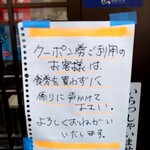 クーポン券ご利用の
お客様は、
食券を買わずに
係りに声かけて
下さい。
よろしくおねがい
いたします。
いらっしゃいま